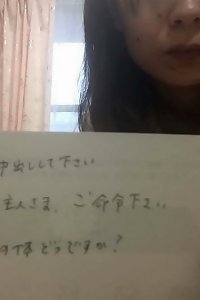 中出しして下さい
主人さま、ご命令下さい
体どうですか？